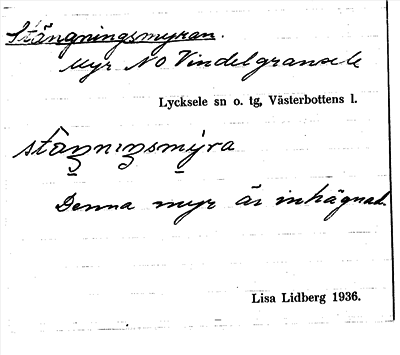 Stängningsmyran.
Myr NO Vindelgransele
Lycksele sn o. tg, Västerbottens l.
Denna myr är inhägnad.
Lisa Lidberg 1936.